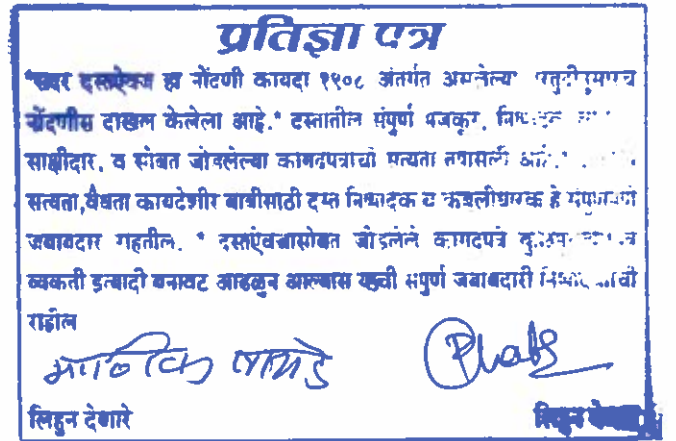 प्रतिज्ञा पत्र
"सदर दस्तऐवज हा नोंदणी कायदा १९०८ अंतर्गत असलेल्या
नोंदणीस दाखल केलेला आहे." दस्तातील संपुर्ण मजकूर,
साक्षीदार, व सोबत जोडलेल्या कागदपत्रांची सत्यता तपासली आहे.
सत्यता,वैधता कायदेशीर बाबीसाठी दस्त निष्पादक व कबुलीधारक हे
जबाबदार राहतील. " दस्तऐवजासोबत जोडलेले कागदपत्रे
व्यक्ती इत्यादी बनावट आढळुन आल्यास याची संपुर्ण जबाबदारी
राहील
लिहुन देणारे
लिहुन